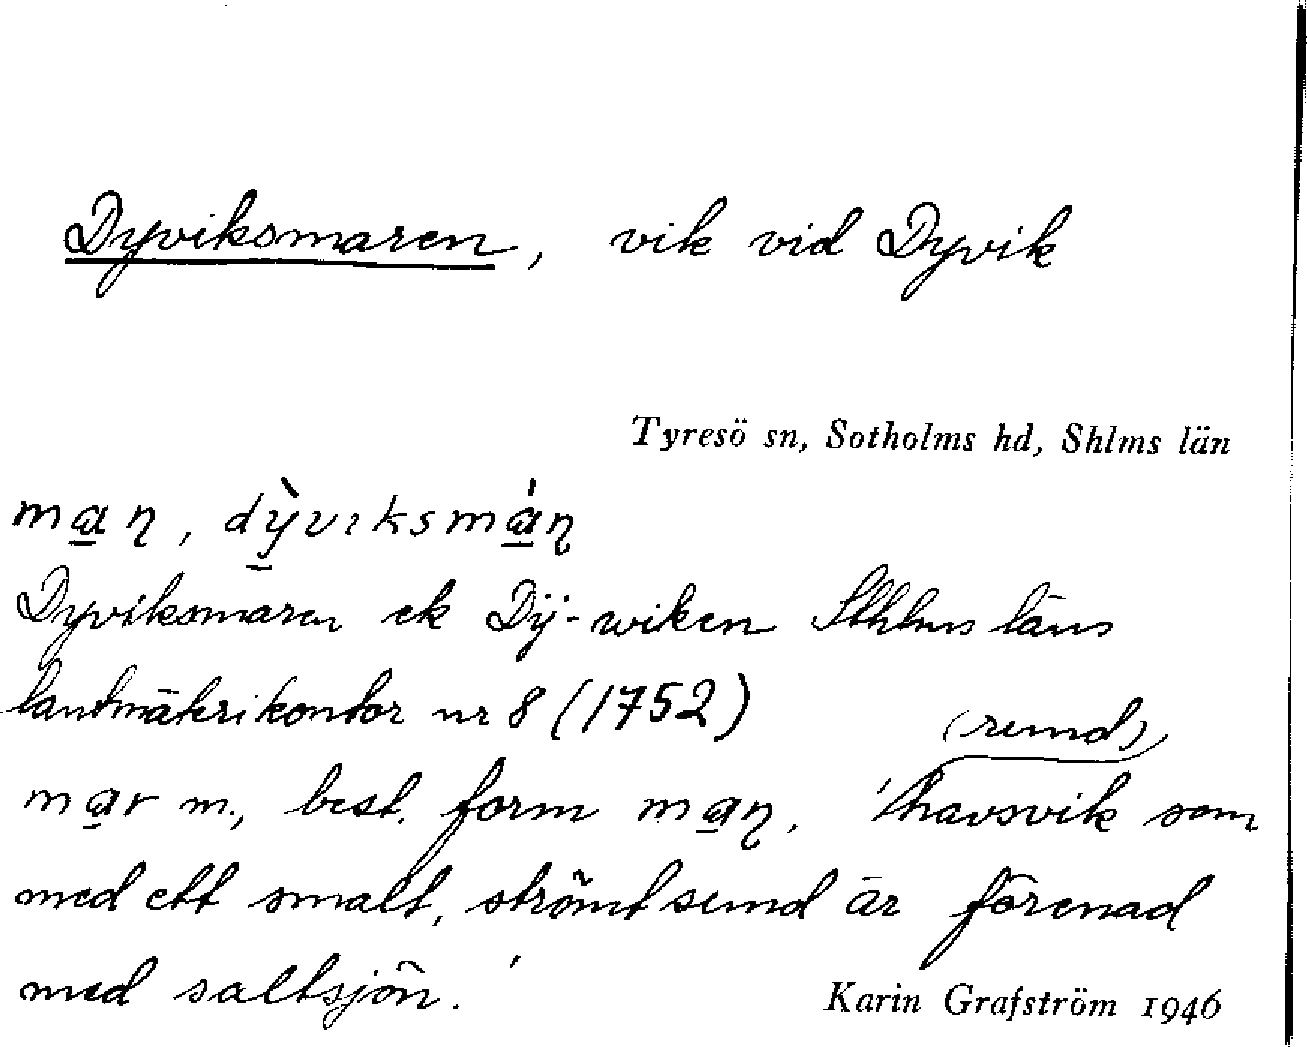 Dyviksmaren, vik vid Dyvik
Tyresö sn, Sotholms hd, Shlms län
ma̲ɳ, dỳ̲vıksmá̲ɳ
Dyviksmaren ek Dÿ-wiken Sthlms läns
lantmäterikontor nr 8 (1752)
(rund)
ma̲r m., best. form ma̲ɳ. 'havsvik som
med ett smalt, strömt sund är förenad
med saltsjön.'
Karin Grafström 1946